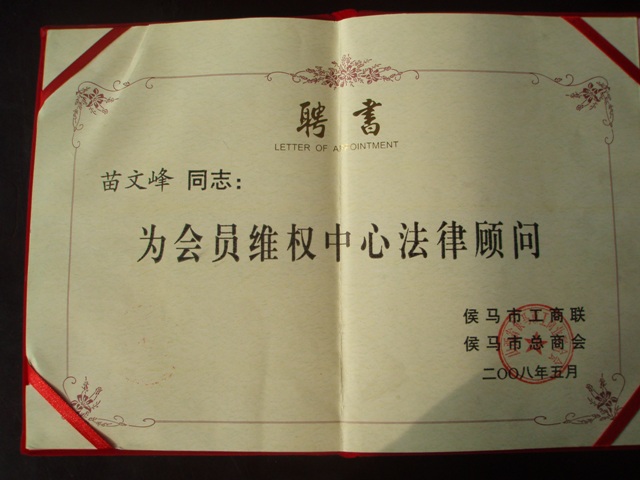 聘书
LETTER OF APPOINTMENT
苗文峰 同志：
为会员维权中心法律顾问
侯马市工商联
侯马市总商会
二〇〇八年五月